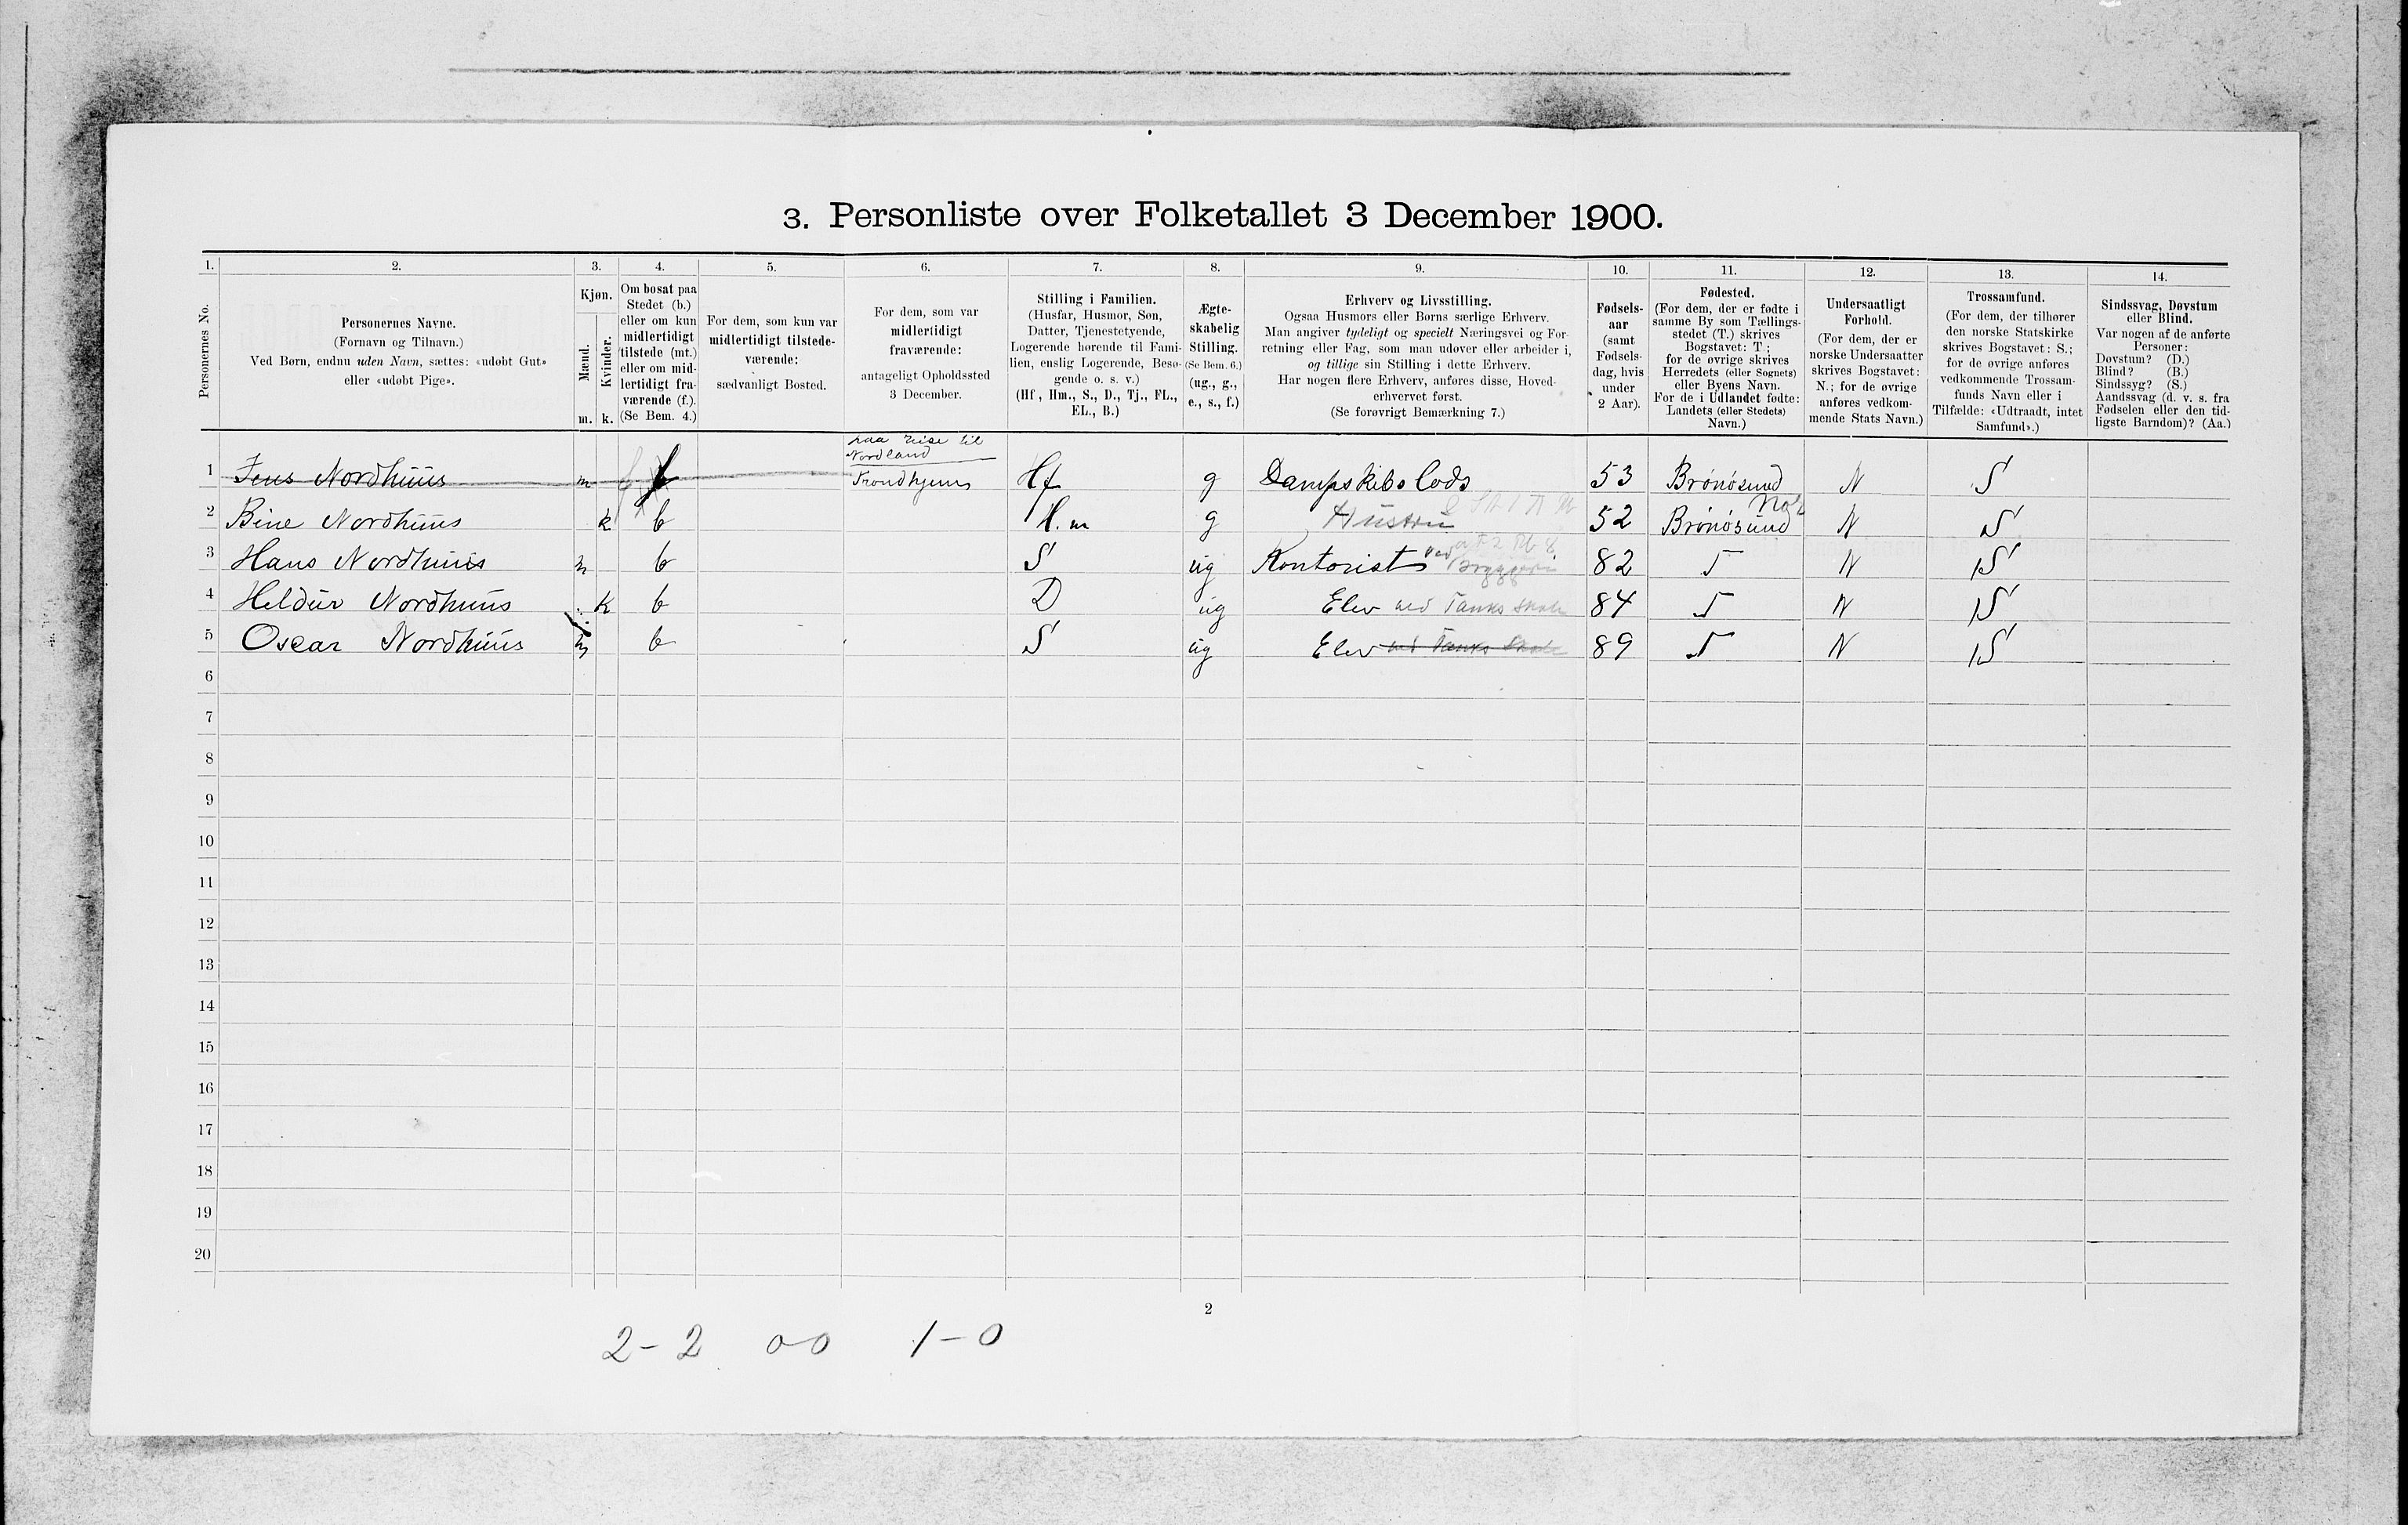 3. Personliste over Folketallet 3 December 1900.
1. 2. 3. 4. 5. 6. 7. 8. 9. 10. 11. 12. 13. 14.
Personernes No.
Personernes Navne.
(Fornavn og Tilnavn.)
Ved Børn, endnu uden Navn, sættes: «udøbt Gut»
eller «udøbt Pige».
Kjøn.
Mænd.
Kvinder.
m. k.
Om bosat paa
Stedet (b.)
eller om kun
midlertidigt
tilstede (mt.)
eller om mid-
lertidigt fra-
værende (f.).
(Se Bem. 4.)
For dem, som kun var
midlertidigt tilstede-
værende:
sædvanligt Bosted.
For dem, som var
midlertidigt
fraværende:
antageligt Opholdssted
3 December.
Stilling i Familien.
(Husfar, Husmor, Søn,
Datter, Tjenestetyende,
Logerende hørende til Fami-
lien, enslig Logerende, Besø-
gende o. s. v.)
(Hf, Hm., S., D., Tj., FL.,
EL., B.)
Ægte-
skabelig
Stilling.
(Se Bem. 6.)
(ug., g.,
e., s., f.)
Erhverv og Livsstilling.
Ogsaa Husmors eller Børns særlige Erhverv.
Man angiver tydeligt og specielt Næringsvei og For-
retning eller Fag, som man udøver eller arbeider i,
og tillige sin Stilling i dette Erhverv.
Har nogen flere Erhverv, anføres disse, Hoved-
erhvervet først.
(Se forøvrigt Bemærkning 7.)
Fødsels-
aar
(samt
Fødsels-
dag, hvis
under
2 Aar).
Fødested.
(For dem, der er fødte i
samme By som Tællings-
stedet (T.) skrives
Bogstavet: T;
for de øvrige skrives
Herredets (eller Sognets)
eller Byens Navn.
For de i Udlandet fødte:
Landets (eller Stedets)
Navn.)
Undersaatligt
Forhold.
(For dem, der er
norske Undersaatter
skrives Bogstavet:
N.; for de øvrige
anføres vedkom-
mende Stats Navn.)
Trossamfund.
(For dem, der tilhører
den norske Statskirke
skrives Bogstavet: S.;
for de øvrige anføres
vedkommende Trossam-
funds Navn eller i
Tilfælde: «Udtraadt, intet
Samfund».)
Sindssvag, Døvstum
eller Blind.
Var nogen af de anførte
Personer:
Døvstum? (D.)
Blind? (B.)
Sindssyg? (S.)
Aandssvag (d. v. s. fra
Fødselen eller den tid-
ligste Barndom)? (Aa.)
paa reise til
Nordland
1 Jens Nordhuus m f Trondhjem Hf g Dampskibs lods 53 Brønøsund N S
2 Bine Nordhuus k b H.m g Hustru 52 Brønøsund N S
3 Hans Nordhuus m b S ug Kontorist ved Bryggeri 82 T N S
4 Heldur Nordhuus k b D ug Elev ved Tanks Skole 84 T N S
5 Oscar Nordhuus m b S ug Elev ved Tanks Skole 89 T N S
6
7
8
9
10
11
12
13
14
15
16
17
18
19
20
2
2-2 0-0 1-0